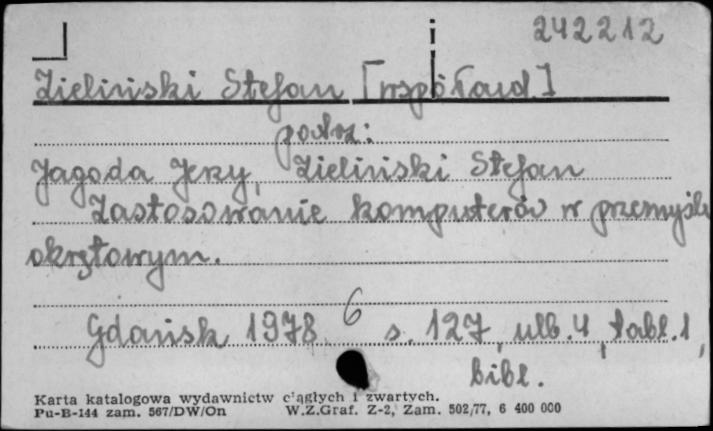 242212
Zieliński Stefan [współaut.]
podrz:
Jagoda Jerzy, Zieliński Stefan
Zastosowanie komputerów w przemyśle
okrętowym.
Gdańsk 1978. 6 s. 127, ulb. 4, tabl. 1,
bibl.
Karta katalogowa wydawnictw ciągłych i zwartych.
Pu-B-144 zam. 567/DW/On W.Z.Graf. Z-2, Zam. 502/77, 6 400 000